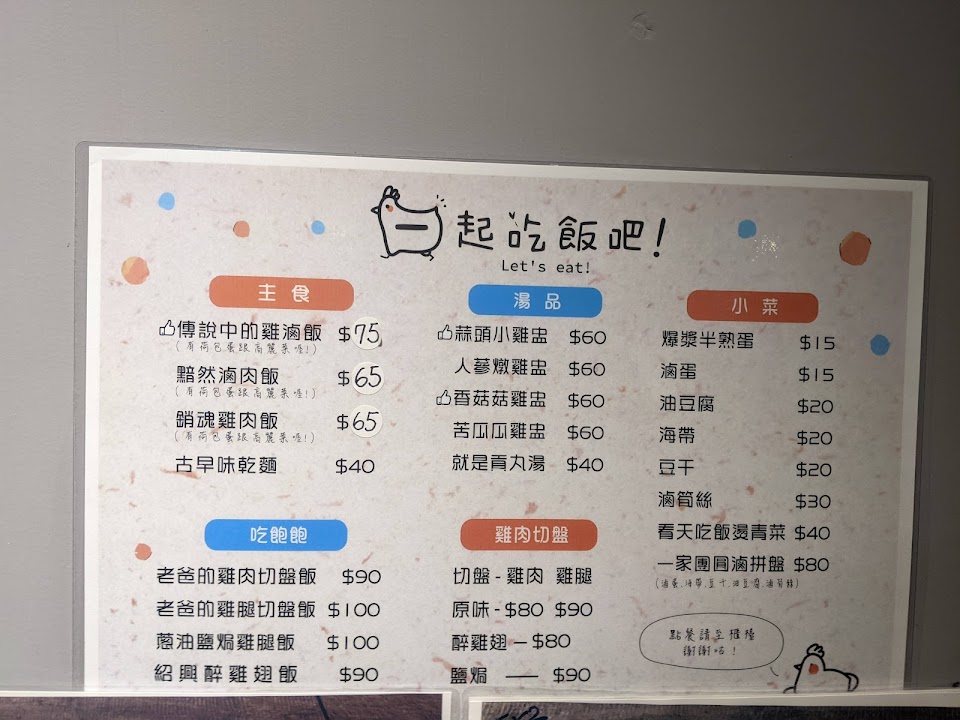 一起吃飯吧!
Let's eat!
主食
傳說中的雞滷飯 $75
(有荷包蛋跟高麗菜喔!)
黯然滷肉飯 $65
(有荷包蛋跟高麗菜喔!)
銷魂雞肉飯 $65
(有荷包蛋跟高麗菜喔!)
古早味乾麵 $40
湯品
蒜頭小雞盅 $60
人蔘燉雞盅 $60
香菇菇雞盅 $60
苦瓜瓜雞盅 $60
就是貢丸湯 $40
小菜
爆漿半熟蛋 $15
滷蛋 $15
油豆腐 $20
海帶 $20
豆干 $20
滷筍絲 $30
看天吃飯燙青菜 $40
一家團圓滷拼盤 $80
(滷蛋.海帶.豆干.油豆腐.滷筍絲)
吃飽飽
老爸的雞肉切盤飯 $90
老爸的雞腿切盤飯 $100
蔥油鹽焗雞腿飯 $100
紹興醉雞翅飯 $90
雞肉切盤
切盤-雞肉 雞腿
原味-$80 $90
醉雞翅—$80
鹽焗 — $90
點餐請至櫃檯
謝謝咕!